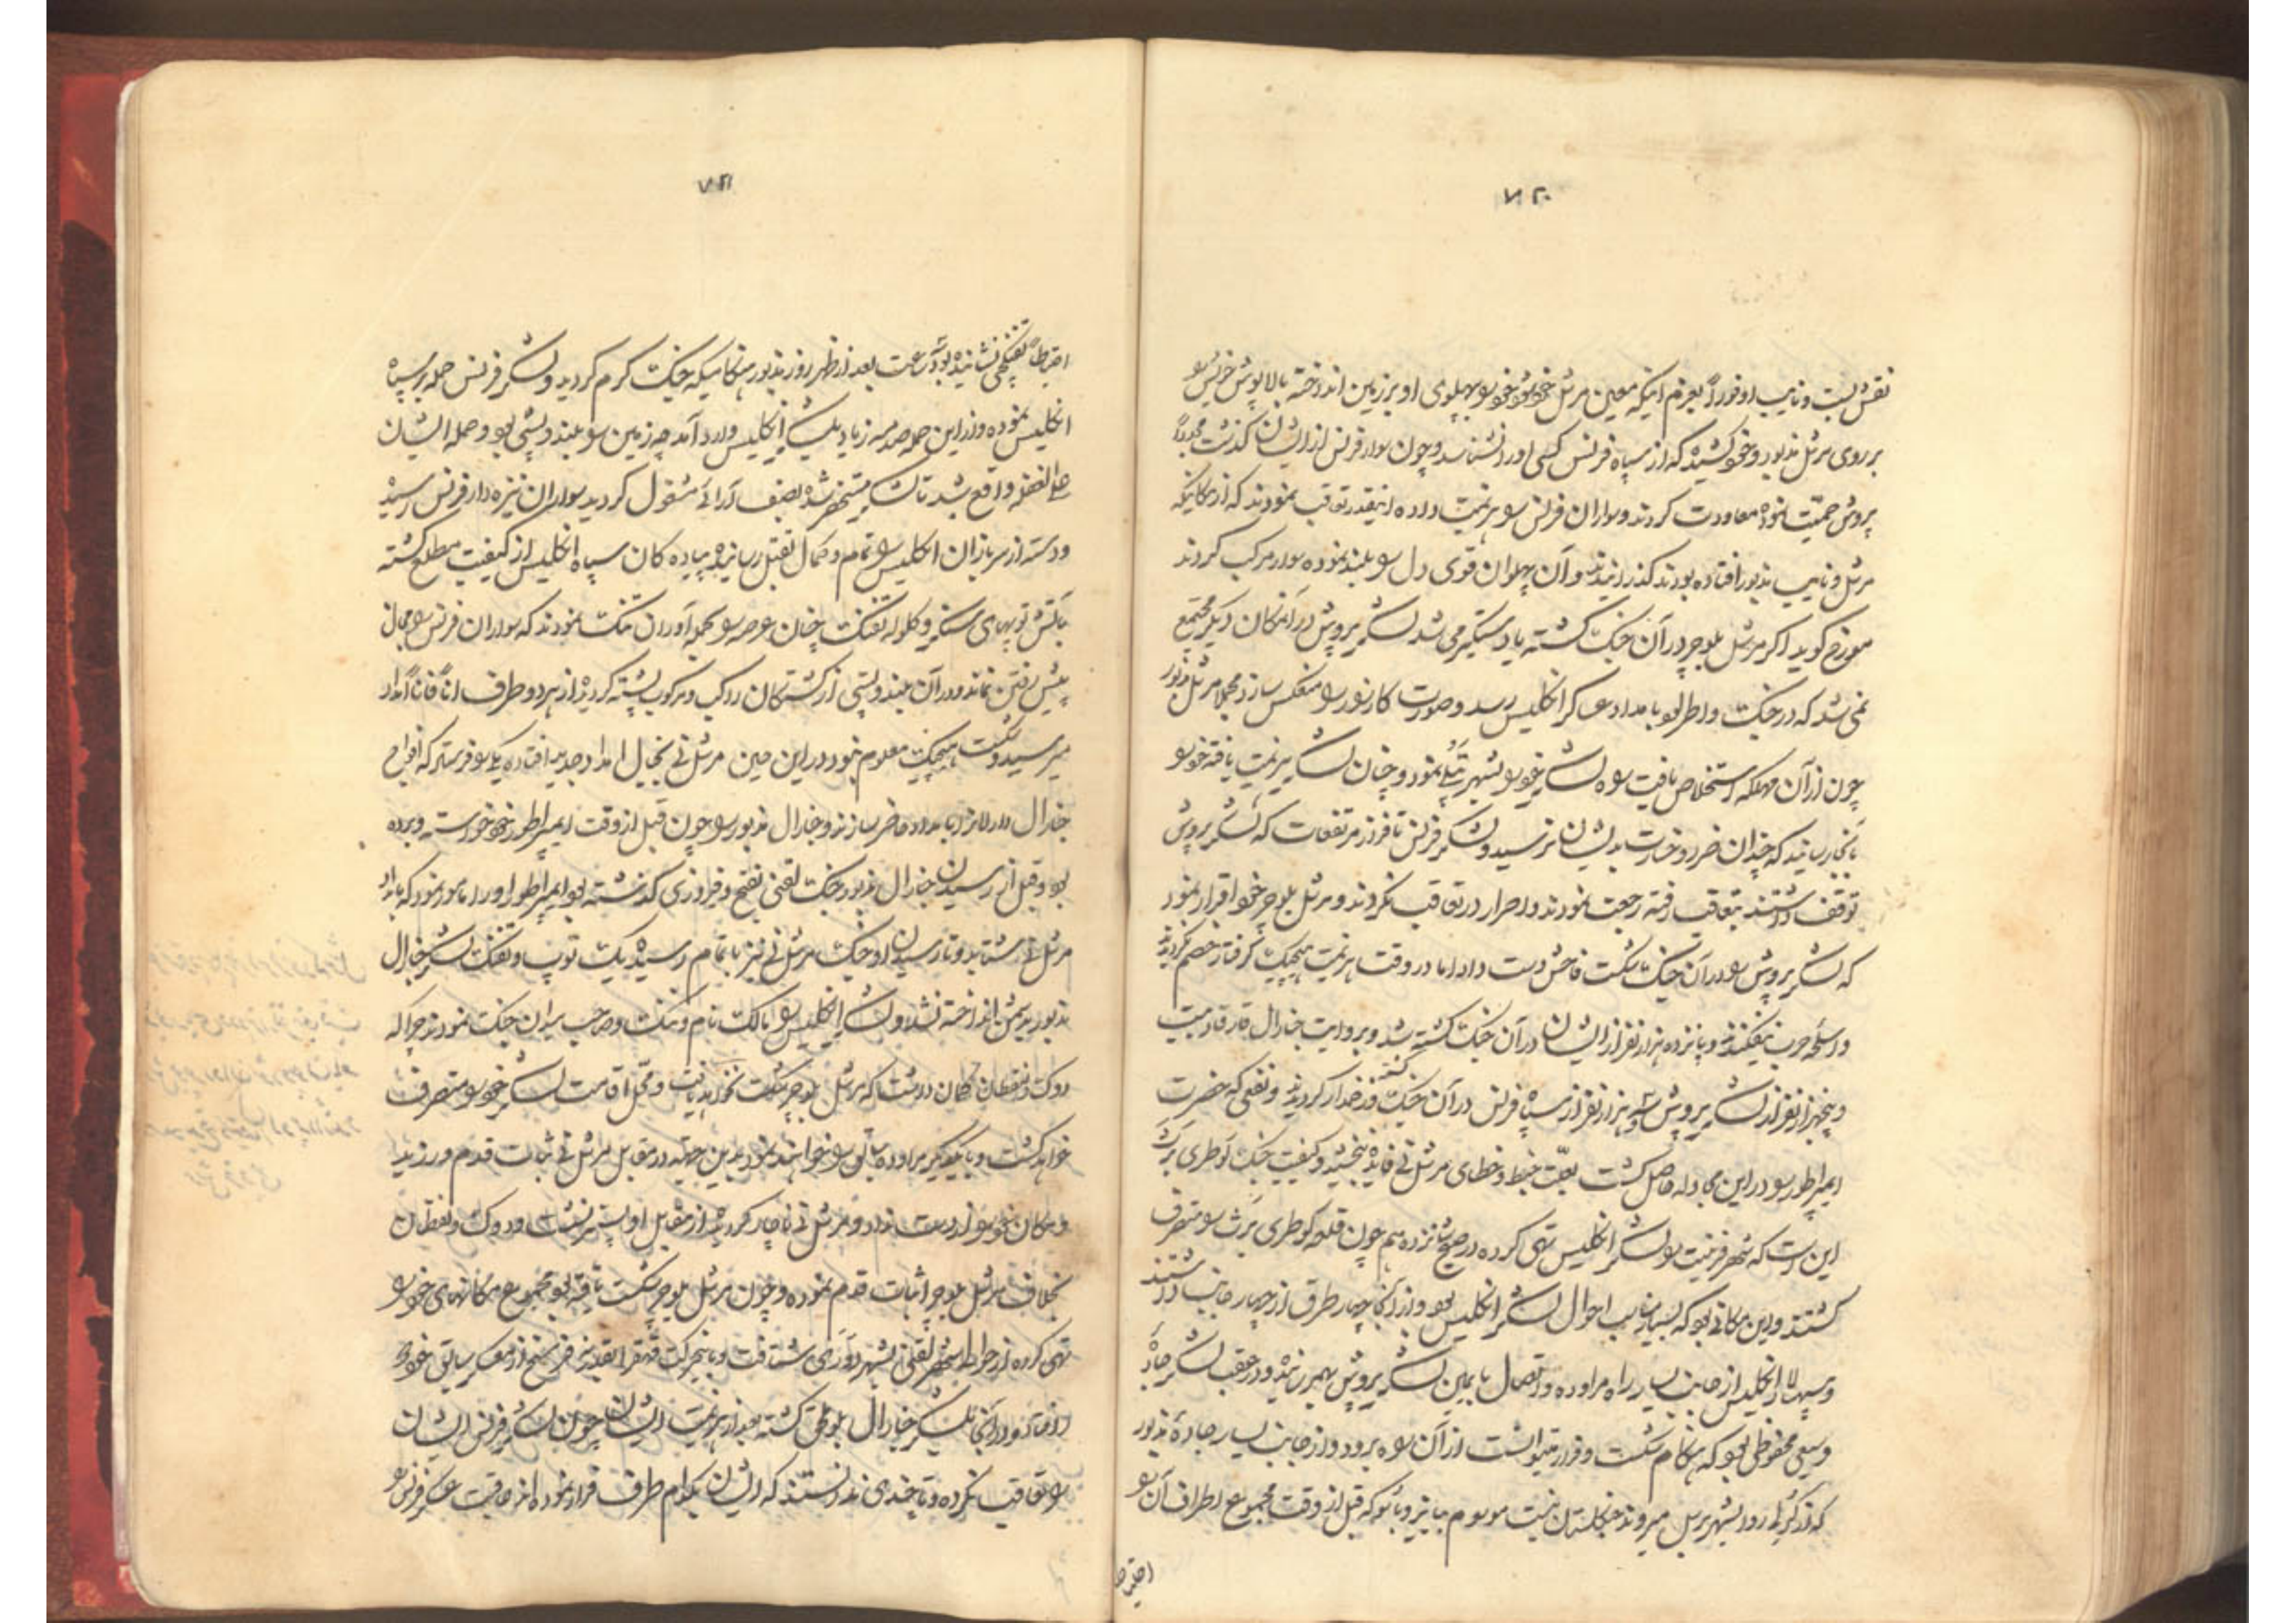 ۷۲۰
نقش بست و نایب او فوراً بعزم اینکه معین مرشل خود شود خود را بپهلوی او بر زمین انداخته بالاپوش خویش را
بر روی مرشل مذبور و خود کشیده که از سپاه فرنس کسی او را نشناسد و چون سوار فرنس از ایشان گذشت مجدداً
پروش جمعیت نموده معاودت کردند و سواران فرنس را هزیمت داده اینقدر تعاقب نمودند که از مکانیکه
مرشل و نایب مذبور افتاده بودند گذرانیدند و آن پهلوان قوی دل را بلند نموده سوار مرکب کردند
مورخ گوید اگر مرشل بلوچر در آن جنگ کشته یا دستگیر می شد لشکر پروش در آنمکان دیگر مجتمع
نمی شد که در جنگ واطرلو بامداد عسکر انگلیس رسد و صورت کارزار را منعکس سازد مجملا مرشل مذبور
چون از آن مهلکه استخلاص یافت سوی لشکر خود بشهر نمود و چنان لشکر هزیمت یافته خود را
بانجا رسانید که چندان ضرر و خسارت بدیشان نرسید و لشکر فرنس تا فراز مرتفعات که لشکر پروش
توقف داشتند بتعاقب رفته رجعت نمودند و اصرار در تعاقب نکردند و مرشل بلوچر خود اقرار نمود
که لشکر پروش را در آن جنگ شکست فاحش دست داد اما در وقت هزیمت هیچیک گرفتار خصم نگردیدند
و اسلحه حرب نیفکندند و پانزده هزار نفر از ایشان در آن جنگ کشته شد و بروایت جنارال بیست
و پنجهزار نفر از لشکر پروش و سه هزار نفر از سپاه فرنس در آن جنگ کشته و زخمدار گردیدند و نفعی که حضرت
ایمپراطور را در این مجادله حاصل گشت بعلت خبط و خطای مرشل نی فایده نبخشید و کیفیت جنگ کوطری برش
این است که شهر فرنیت را لشکر انگلیس تهی کرده در صبح شانزدهم چون قلعه کوطری برش را متصرف
گشتند و این مکانی بود که بسیار مناسب احوال لشکر انگلیس بود و از آنجا چهار طرق از چهار جانب داشتند
و سپهسالار انگلیس از جانب یسار راه مراوده و اتصال با یمین لشکر پروش بهم رسانیده و در عقب لشکر جاده
وسیعی محفوظی بود که هنگام شکست و فرار میتوانست از آن راه برود و از جانب یسار جاده مذبور
که از رو بشهر برسل میروند جنگلستان نیست موسوم به و بود که قبل از وقت مجموع اطراف آن را
احتیاطاً
۷۲۱
احتیاطاً تفنگچی نشانیده بود ساعت بعد از ظهر روز مذبور هنگامیکه جنگ گرم گردید و لشکر فرنس حمله بر سپاه
انگلیس نموده و از این حمله صدمه زیاد بلشکر انگلیس وارد آمد چه زمین را بلند و پستی بود و حمله ایشان
علی الغفله واقع شد تا لشکر مستحضر شده بصف آرائی مشغول گردید سواران نیزه دار فرنس رسیده
و دسته از سربازان انگلیس را بتمام و کمال بقتل رسانیدند پیاده گان سپاه انگلیس از کیفیت مطلع گشته
بآتش توپهای سنگین و گلوله تفنگ چنان عرصه را بحمله آوران تنگ نمودند که سواران فرنس را مجال
پیش رفتن نماند و در آن بلند و پستی از کشتگان راکب و مرکوب پشته گردیده از هر دو طرف اناً فاناً امداد
میرسید و شکست هیچیک معلوم نبود در این حین مرشل نی بخیال امداد جدید افتاده یکی را فرستاد که افواج
جنارال درلانرا بامداد حاضر سازند و جنارال مذبور را چون قبل از وقت ایمپراطور خود خواسته و برده
بود و قبل از رسیدن جنارال مذبور جنگ لقنی بفتح و فیروزی گذشته بود ایمپراطور او را مامور نمود که بامداد
مرشل نی شتابد و تا رسیدن او جنگ مرشل نی نیز باتمام رسیده یک توپ و تفنگ لشکر جنارال
مذبور بدشمن انداخته نشد و لشکر انگلیس را مالک نام و ننگ و صاحب میدان جنگ نمودند چرا که
دوک ولنقطان گمان داشت که مرشل بلوچر شکست نخواهد یافت و محل اقامت لشکر خود را متصرف
خواهد گشت و با یکدیگر مراوده سابق را خواهند نمود بدین جهته در مقابل مرشل نی ثبات قدم ورزید
و مکان خود را از دست نداد و مرشل نی ناچار گردیده از مقابل او پستر نشست و دوک ولنقطان
بخلاف مرشل بلوچر اثبات قدم نموده و چون مرشل بلوچر شکست یافته بود مجموع مکانهای خود را
تهی کرده از حوالی شهر لقنی بشهر شتافت و باینحرکت قهقرا بقدر فرسخ از معسکر سابق خود
دور افتاد و در آنجا بلشکر جنارال بلو ملحق گشته بعد از هزیمت ایشان چون لشکر فرنس ایشان
را تعاقب نکرده و تا چندی ندانستند که ایشان بکدام طرف فرار نموده اند عاقبت عسکر فرنس را